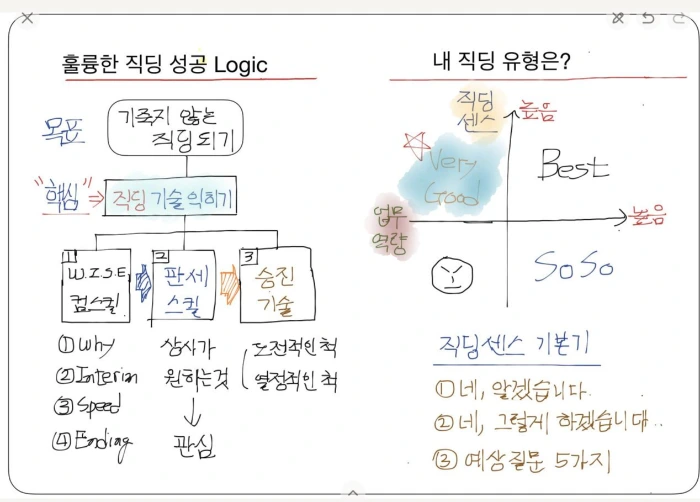 훌륭한 직딩 성공 Logic
목표
기죽지 않는
직딩 되기
"핵심" ⇒ 직딩 기술 익히기
1
W.I.S.E
컴스킬
2
판세
스킬
3
승진
기술
① Why
② Interim
③ Speed
④ Ending
상사가
원하는것
↓
관심
도전적인 척
열정적인 척
내 직딩 유형은?
직딩
센스
높음
Very
Good
Best
업무
역량
높음
SoSo
직딩센스 기본기
① 네, 알겠습니다.
② 네, 그렇게 하겠습니다..
③ 예상질문 5가지